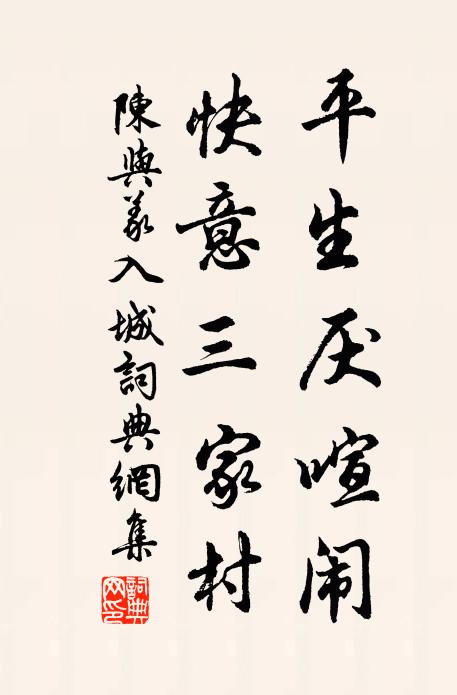 平生厌喧闹
快意三家村
陳與義入城詞典網集
詞典网印